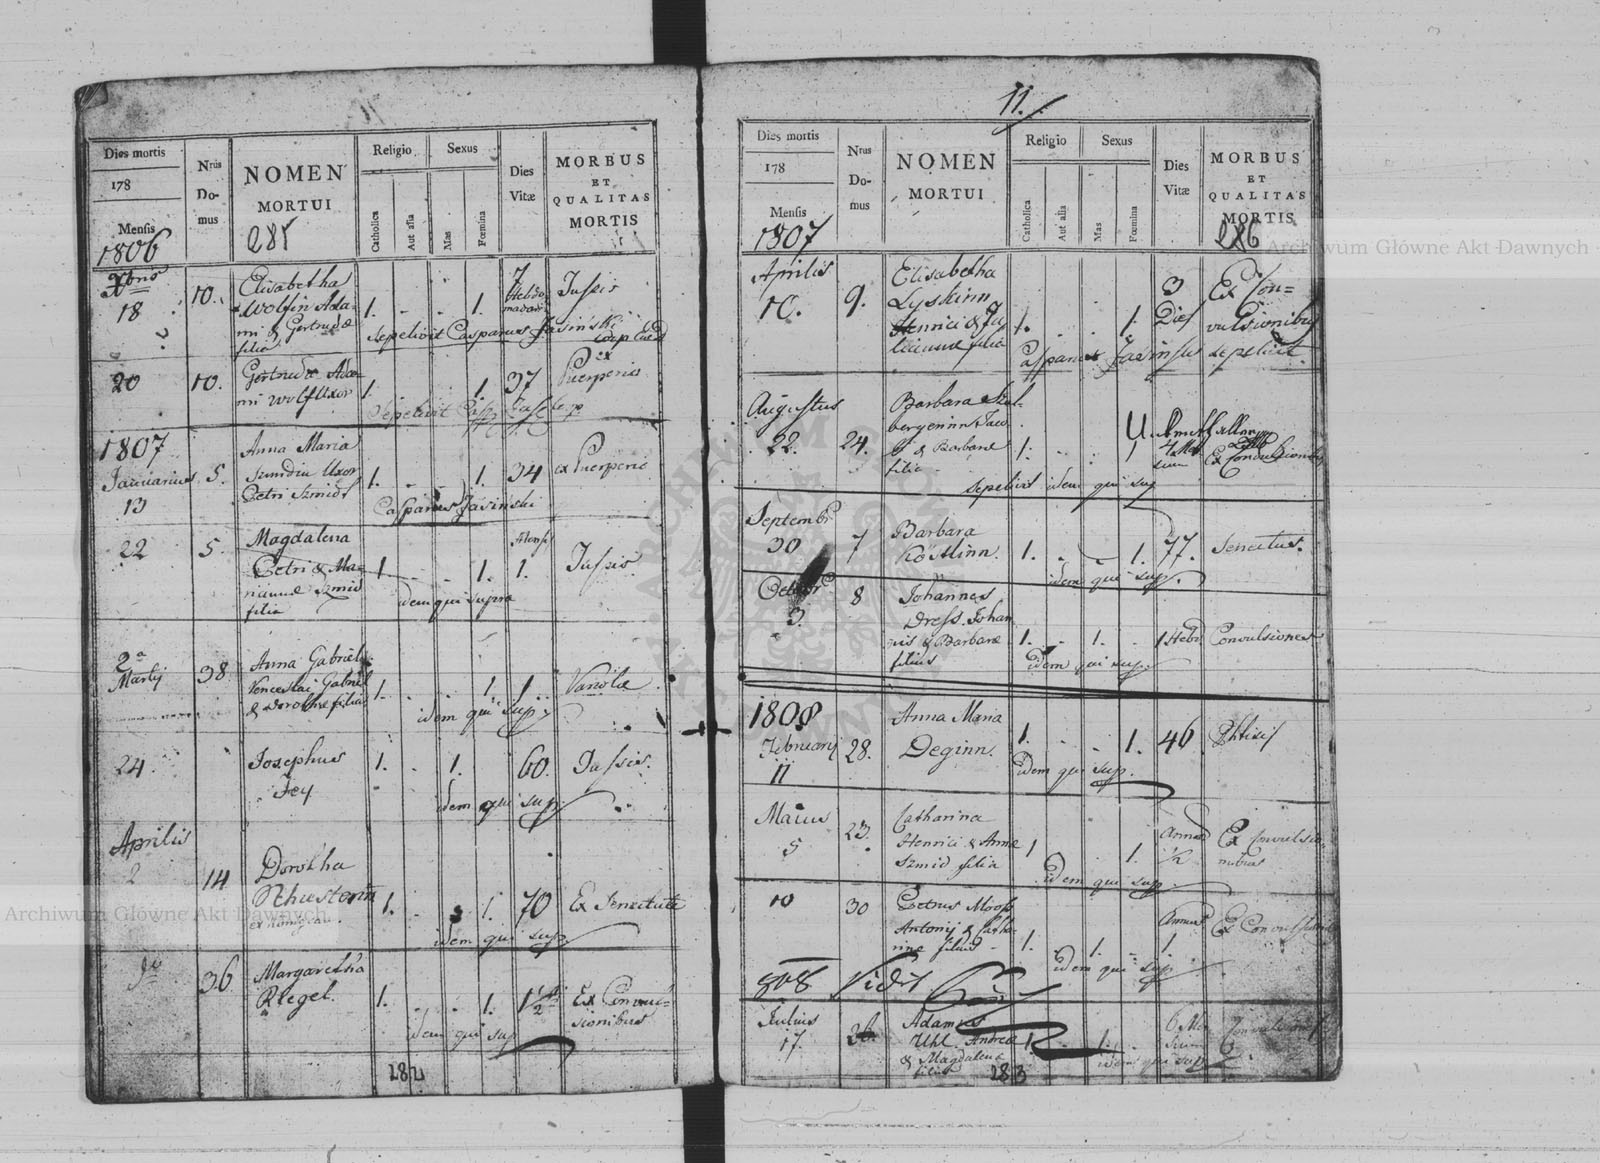 Dies mortis
178
Mensis
1806
Nrus
Do-
mus
NOMEN
MORTUI
285
Religio
Catholica
Aut alia
Sexus
Mas
Fœmina
Dies
Vitæ
MORBUS
ET
QUALITAS
MORTIS
Xbris
18
10.
Elisabetha
Wolfin Ada-
mi & Gertrudæ
filia
1.
1.
7
Hebdo
madar
Tussis
Sepelivit Casparus Jasinski
20
10.
Gertrudæ Ada-
mi Wolf Uxor
1.
1.
37
ex
Puerperio
Sepelivit
1807
Januarius
13
5.
Anna Maria
Szmidin Uxor
Petri Szmidt
1.
1.
34
ex Puerperio
Casparus Jasinski
22
5.
Magdalena
Petri & Ma-
riannæ Szmid
filia
1
1.
1.
Tussis
idem qui supra
2a
Martij
38
Anna Gabriel
Venceslai Gabriel
& Dorothe filia
1.
1
1
Variolæ
idem qui sup
24.
Josephus
Fey
1.
1.
60.
Tussis.
idem qui sup
Aprilis
2
14
Dorotha
Schusterin
1.
1.
70
Ex Senectute
idem qui sup
36
Margaretha
Rlegel.
1.
1.
1 1/2
Ex Convul-
sionibus
idem qui sup
282
11.
Dies mortis
178
Mensis
1807
Nrus
Do-
mus
NOMEN
MORTUI
Religio
Catholica
Aut alia
Sexus
Mas
Fœmina
Dies
Vitæ
MORBUS
ET
QUALITAS
MORTIS
286
Aprilis
10.
9.
Elisabetha
Lyskinn
Henrici & Ju
lianna filia
1.
1.
3
Dies
Ex Con=
vulsionibus
Casparus Jasinski sepelivit
Augustus
22.
24.
Barbara Szal-
bergerinn Jaco
bi & Barbaræ
filia
1.
1
Ex Convulsionibus
sepelivit idem qui sup
Septembr
30
7
Barbara
Kostlinn.
1.
1.
77.
Senectus.
idem qui sup.
Octobr
3.
8
Johannes
Dress. Johan
nis & Barbaræ
filius
1.
1.
1 Hebd
Convulsiones
idem qui sup
1808
February
11
28.
Anna Maria
Deginn.
1.
1.
46
Phtisis
idem qui sup.
Maius
5
23.
Catharina
Henrici & Annæ
Szmid filia
1
1.
Annus
1/2
Ex Convulsio-
nibus
idem qui sup
10
30
Petrus Moos
Antonij & Catha
rinæ filius
1.
1.
Annus
1.
Ex Convulsionib
idem qui sup
808
Vidi
Julius
17.
Adamus
Uhl. Andreæ
& Magdalenæ
filius
1.
1.
6 Men
sium
Convulsiones
idem qui sup
283
Archiwum Główne Akt Dawnych
Archiwum Główne Akt Dawnych